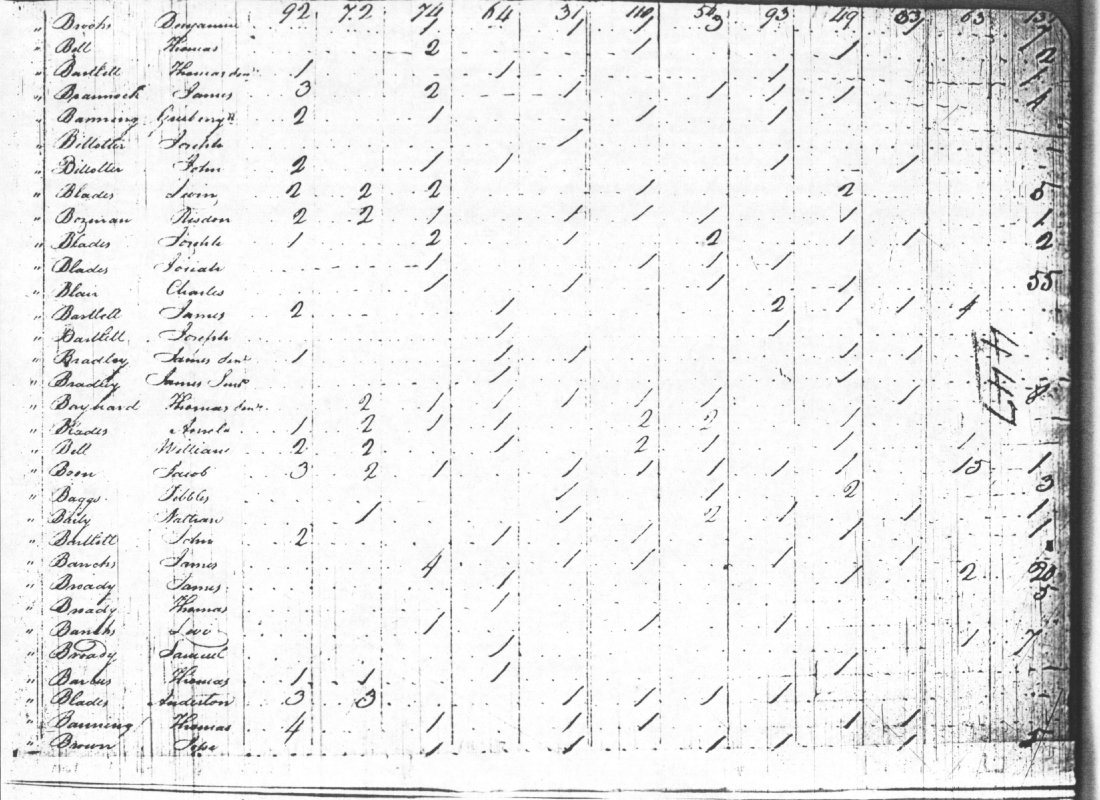 " Brooks Benjamin 92 72 74 64 31 110 56 93 49 53 63
" Bell Thomas 2 1 1 2
" Bartlett Thomas Senr 1 1 1 1
" Brannock James 3 2 1 1 1 1 4
" Banning 2 1 1 1
" Billotter Joseph 1
" Billotter John 2 1 1 1 1
" Blades Levin 2 2 2 1 2 5
" Bozman Risdon 2 2 1 1 1 1 1 1
" Blades Joseph 1 2 1 2 1 1 2
" Blades Josiah 1 1 1 1
" Blair Charles 1 1 1 1 55
" Bartlett James 2 1 2 1 1 4
" Bartlett Joseph 1 1
" Bradley James Senr 1 1 1 1 1
" Bradley James Junr 1 1
447
" Thomas Senr 2 1 1 1 1 1 1 8
" Blades 1 2 1 1 2 2 1
" Bell William 2 2 1 2 1 1 1
" Boon Jacob 3 2 1 1 1 1 1 1 15 1
" Baggs 1 1 2 3
" Baily Nathan 1 1 2 1 1 1
" Bartlett John 2 1 1 1 1
" Banchs James 4 1 1 1 1
" Broady James 1 1 2 20
" Broady Thomas 1 5
" Banchs 1 1 1
" Broady Samuel 1 1 7
" Thomas 1 1 1 1
" Blades Anderton 3 3 1 1 1 1
" Banning Thomas 4 1 1 1 1 1
" Brown 1 1 1 1 1 5